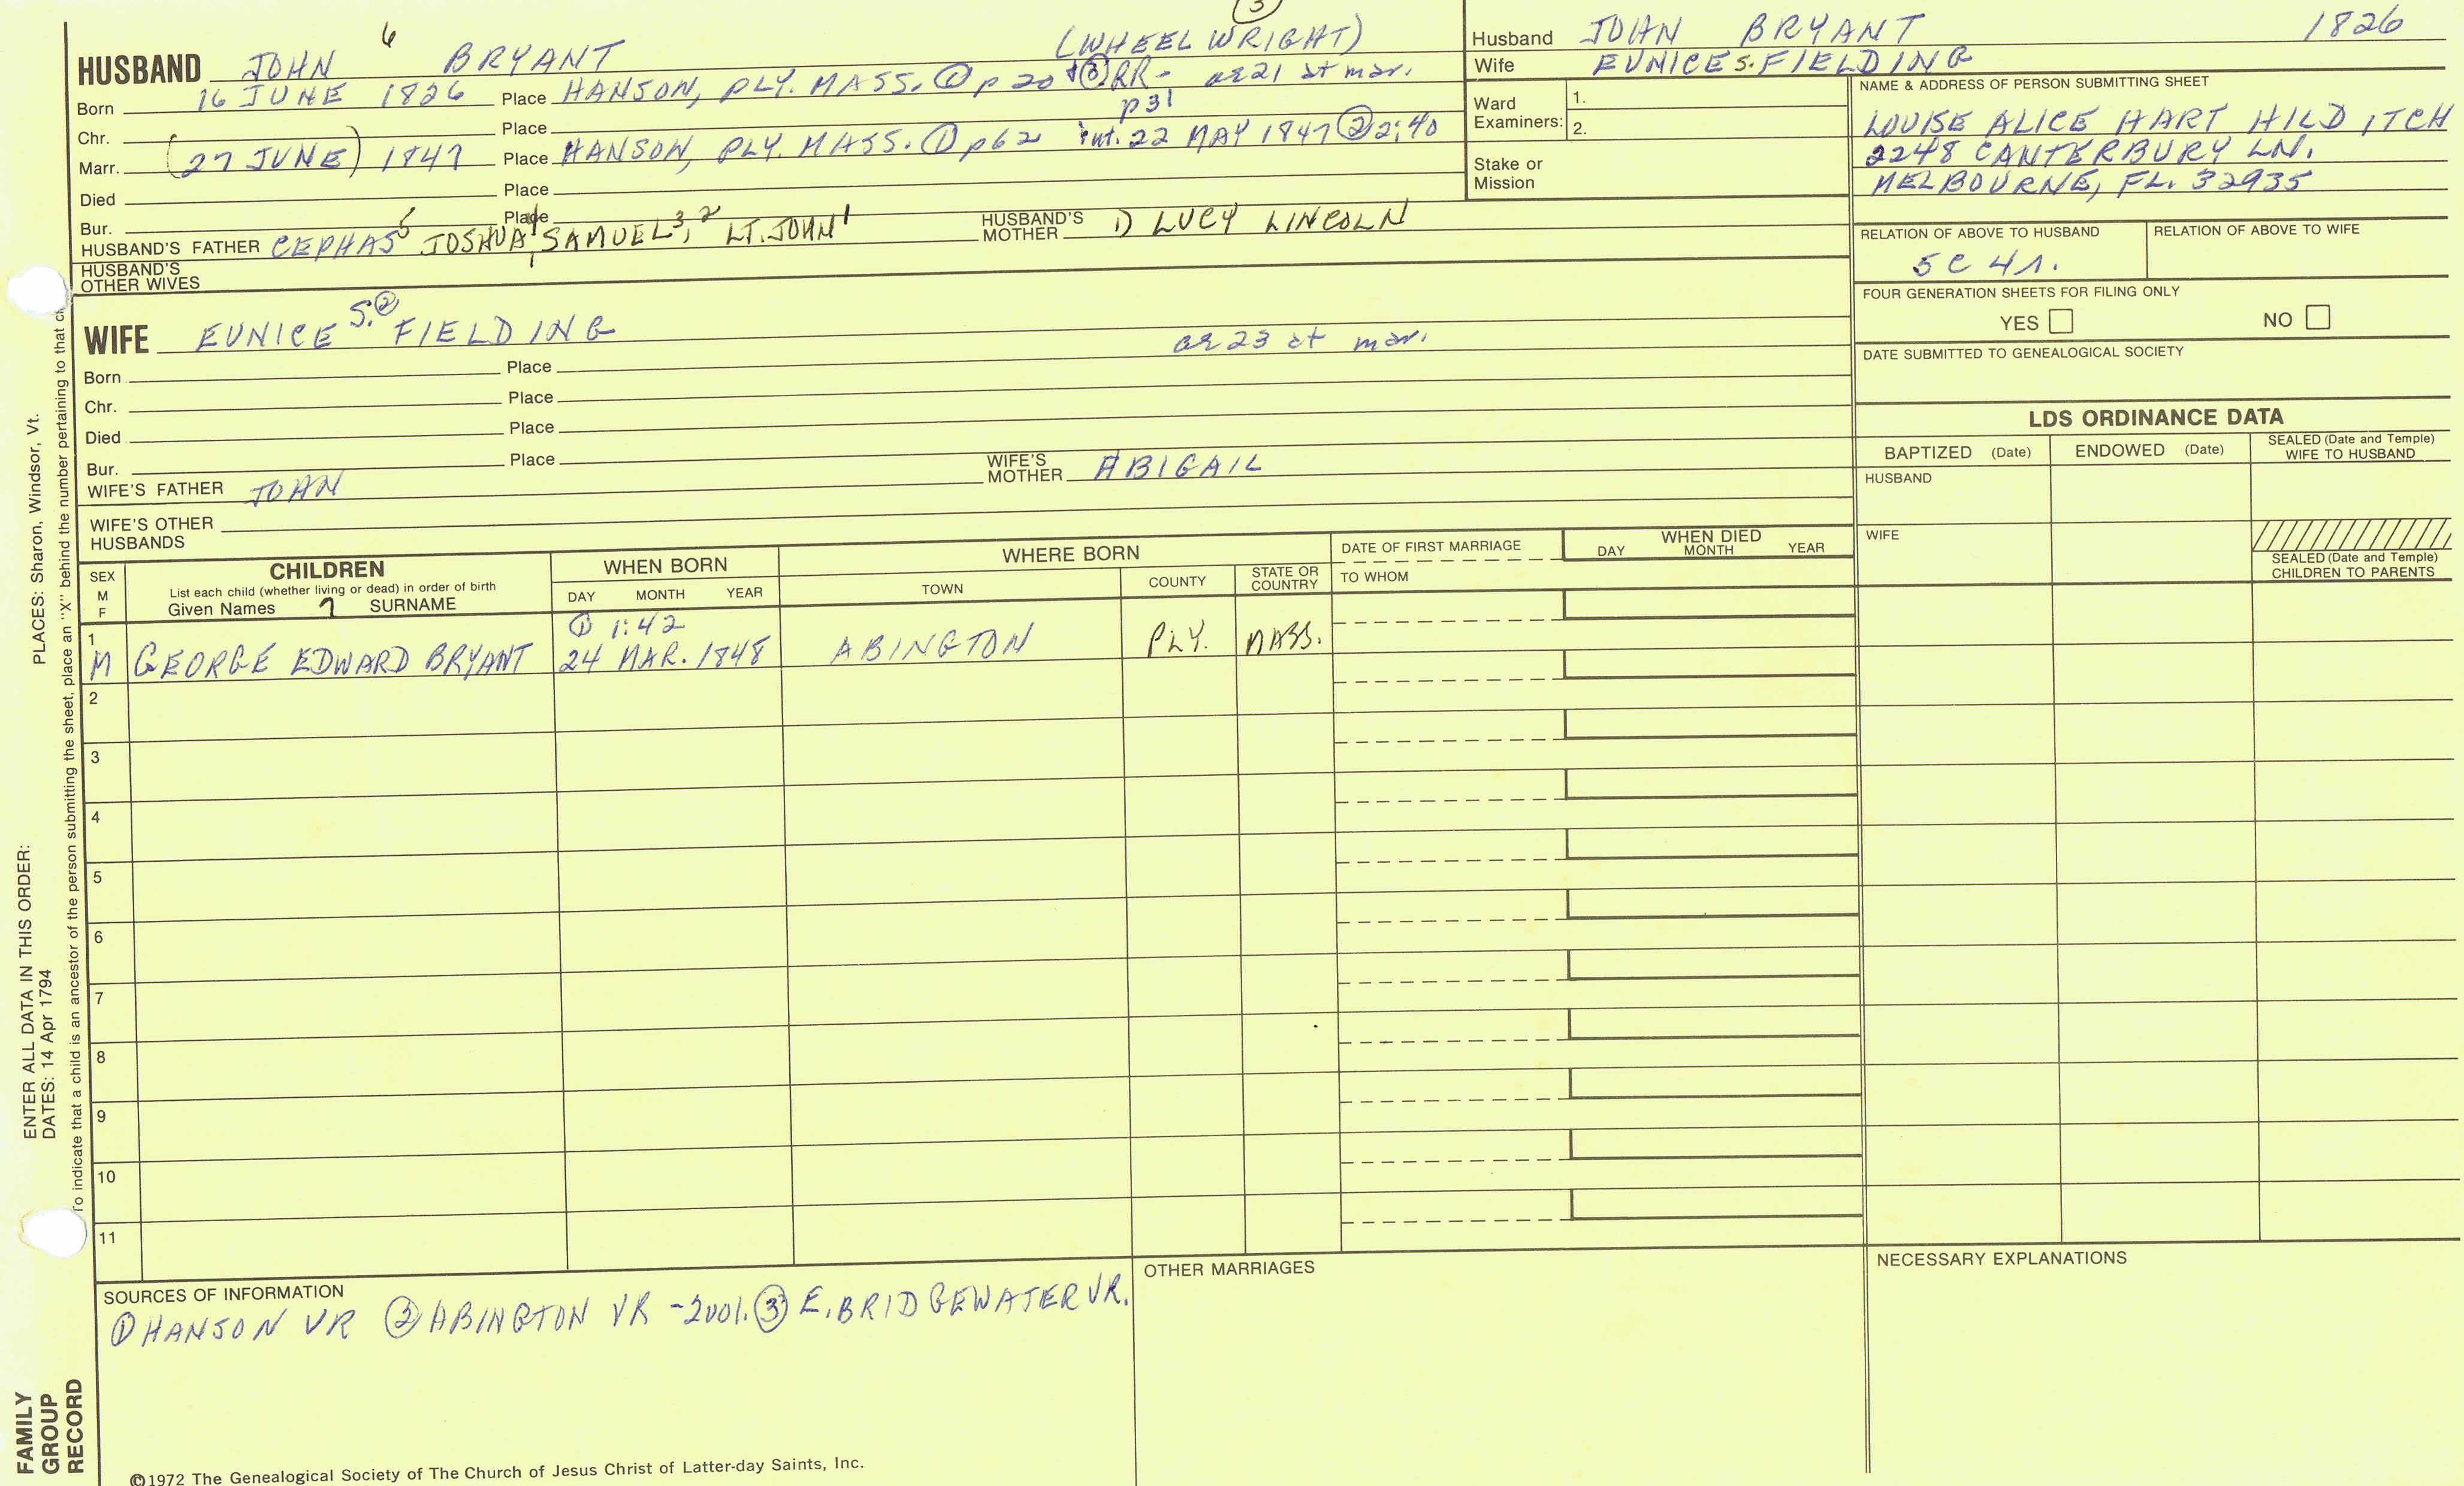 3
HUSBAND JOHN 6 BRYANT (WHEEL WRIGHT)
Born 16 JUNE 1826 Place HANSON, PLY. MASS. ① p 20 + ③ RR - ae 21 at mar.
p 31
Chr. Place
Marr. (27 JUNE) 1847 Place HANSON, PLY. MASS. ① p 62 int. 22 MAY 1847 ② 2:40
Died Place
Bur. Place
HUSBAND'S FATHER CEPHAS5 JOSHUA4 SAMUEL3,2 LT. JOHN1 HUSBAND'S MOTHER 1) LUCY LINCOLN
HUSBAND'S OTHER WIVES
WIFE EUNICE S.② FIELDING ae 23 at mar.
Born Place
Chr. Place
Died Place
Bur. Place
WIFE'S FATHER JOHN WIFE'S MOTHER ABIGAIL
WIFE'S OTHER HUSBANDS
Husband JOHN BRYANT 1826
Wife EUNICE S. FIELDING
Ward Examiners: 1.
2.
Stake or Mission
NAME & ADDRESS OF PERSON SUBMITTING SHEET
LOUISE ALICE HART HILDITCH
2248 CANTERBURY LN.
MELBOURNE, FL. 32935
RELATION OF ABOVE TO HUSBAND RELATION OF ABOVE TO WIFE
5 C 4 r.
FOUR GENERATION SHEETS FOR FILING ONLY
YES NO
DATE SUBMITTED TO GENEALOGICAL SOCIETY
LDS ORDINANCE DATA
BAPTIZED (Date) ENDOWED (Date) SEALED (Date and Temple) WIFE TO HUSBAND
HUSBAND
WIFE
SEALED (Date and Temple) CHILDREN TO PARENTS
SEX M F
CHILDREN
List each child (whether living or dead) in order of birth
Given Names 7 SURNAME
WHEN BORN
DAY MONTH YEAR
WHERE BORN
TOWN COUNTY STATE OR COUNTRY
DATE OF FIRST MARRIAGE
TO WHOM
WHEN DIED
DAY MONTH YEAR
① 1:42
1 M GEORGE EDWARD BRYANT 24 MAR. 1848 ABINGTON PLY. MASS.
2
3
4
5
6
7
8
9
10
11
SOURCES OF INFORMATION
① HANSON VR ② ABINGTON VR - 2001. ③ E. BRIDGEWATER VR.
OTHER MARRIAGES
NECESSARY EXPLANATIONS
©1972 The Genealogical Society of The Church of Jesus Christ of Latter-day Saints, Inc.
FAMILY GROUP RECORD
ENTER ALL DATA IN THIS ORDER:
DATES: 14 Apr 1794
PLACES: Sharon, Windsor, Vt.
To indicate that a child is an ancestor of the person submitting the sheet, place an "X" behind the number pertaining to that